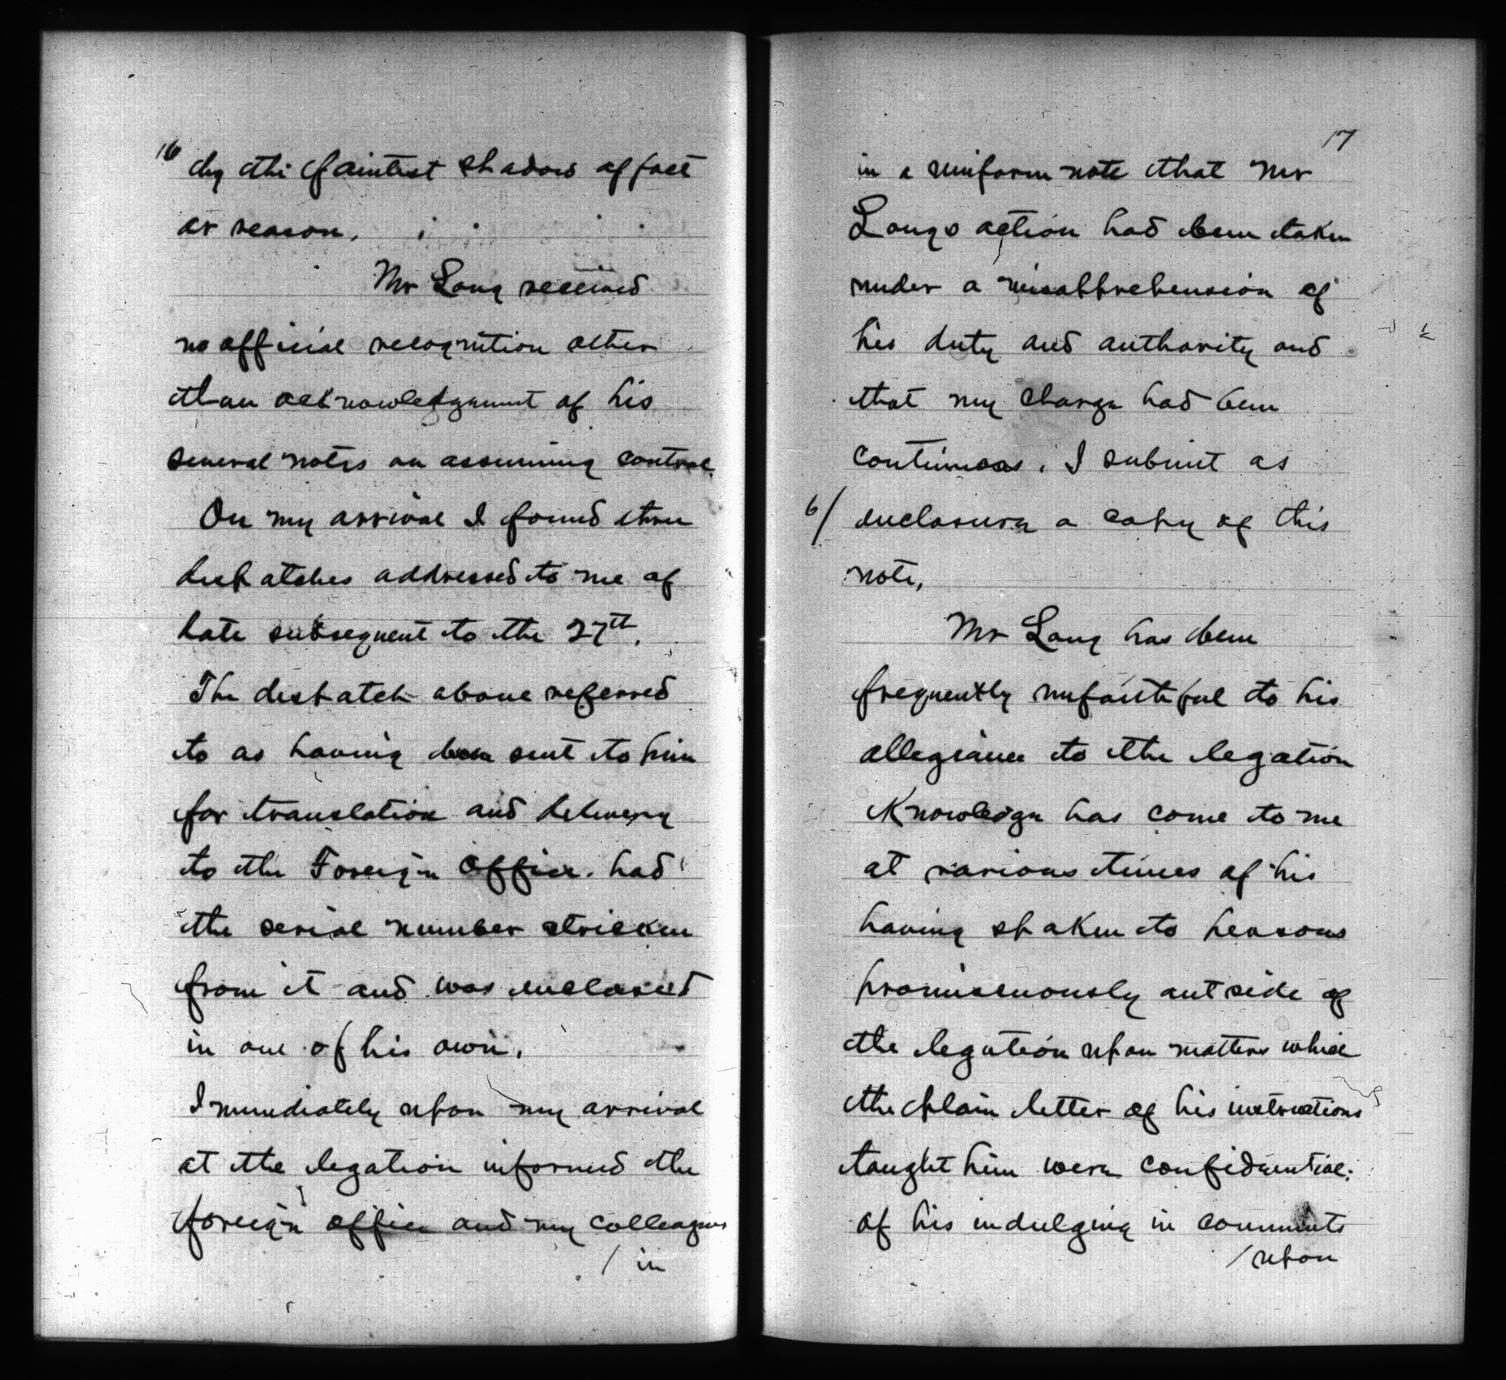 16
by the faintest shadow of fact
or reason.
Mr Long received
no official recognition other
than acknowledgment of his
several notes on assuming control.
On my arrival I found three
dispatches addressed to me of
date subsequent to the 27th.
The dispatch above referred
to as having been sent to him
for translation and delivery
to the Foreign Office. had
the serial number stricken
from it and was enclosed
in one of his own.
Immediately upon my arrival
at the legation informed the
foreign office and my colleagues
/ in
17
in a uniform note that Mr
Longs action had been taken
under a misapprehension of
his duty and authority and
that my charge had been
continuous. I submit as
6/ enclosure a copy of this
note,
Mr Long has been
frequently unfaithful to his
allegiance to the legation
Knowledge has come to me
at various times of his
having spoken to persons
promiscuously outside of
the legation upon matters which
the plain letter of his instructions
taught him were confidential;
of his indulging in comments
/upon